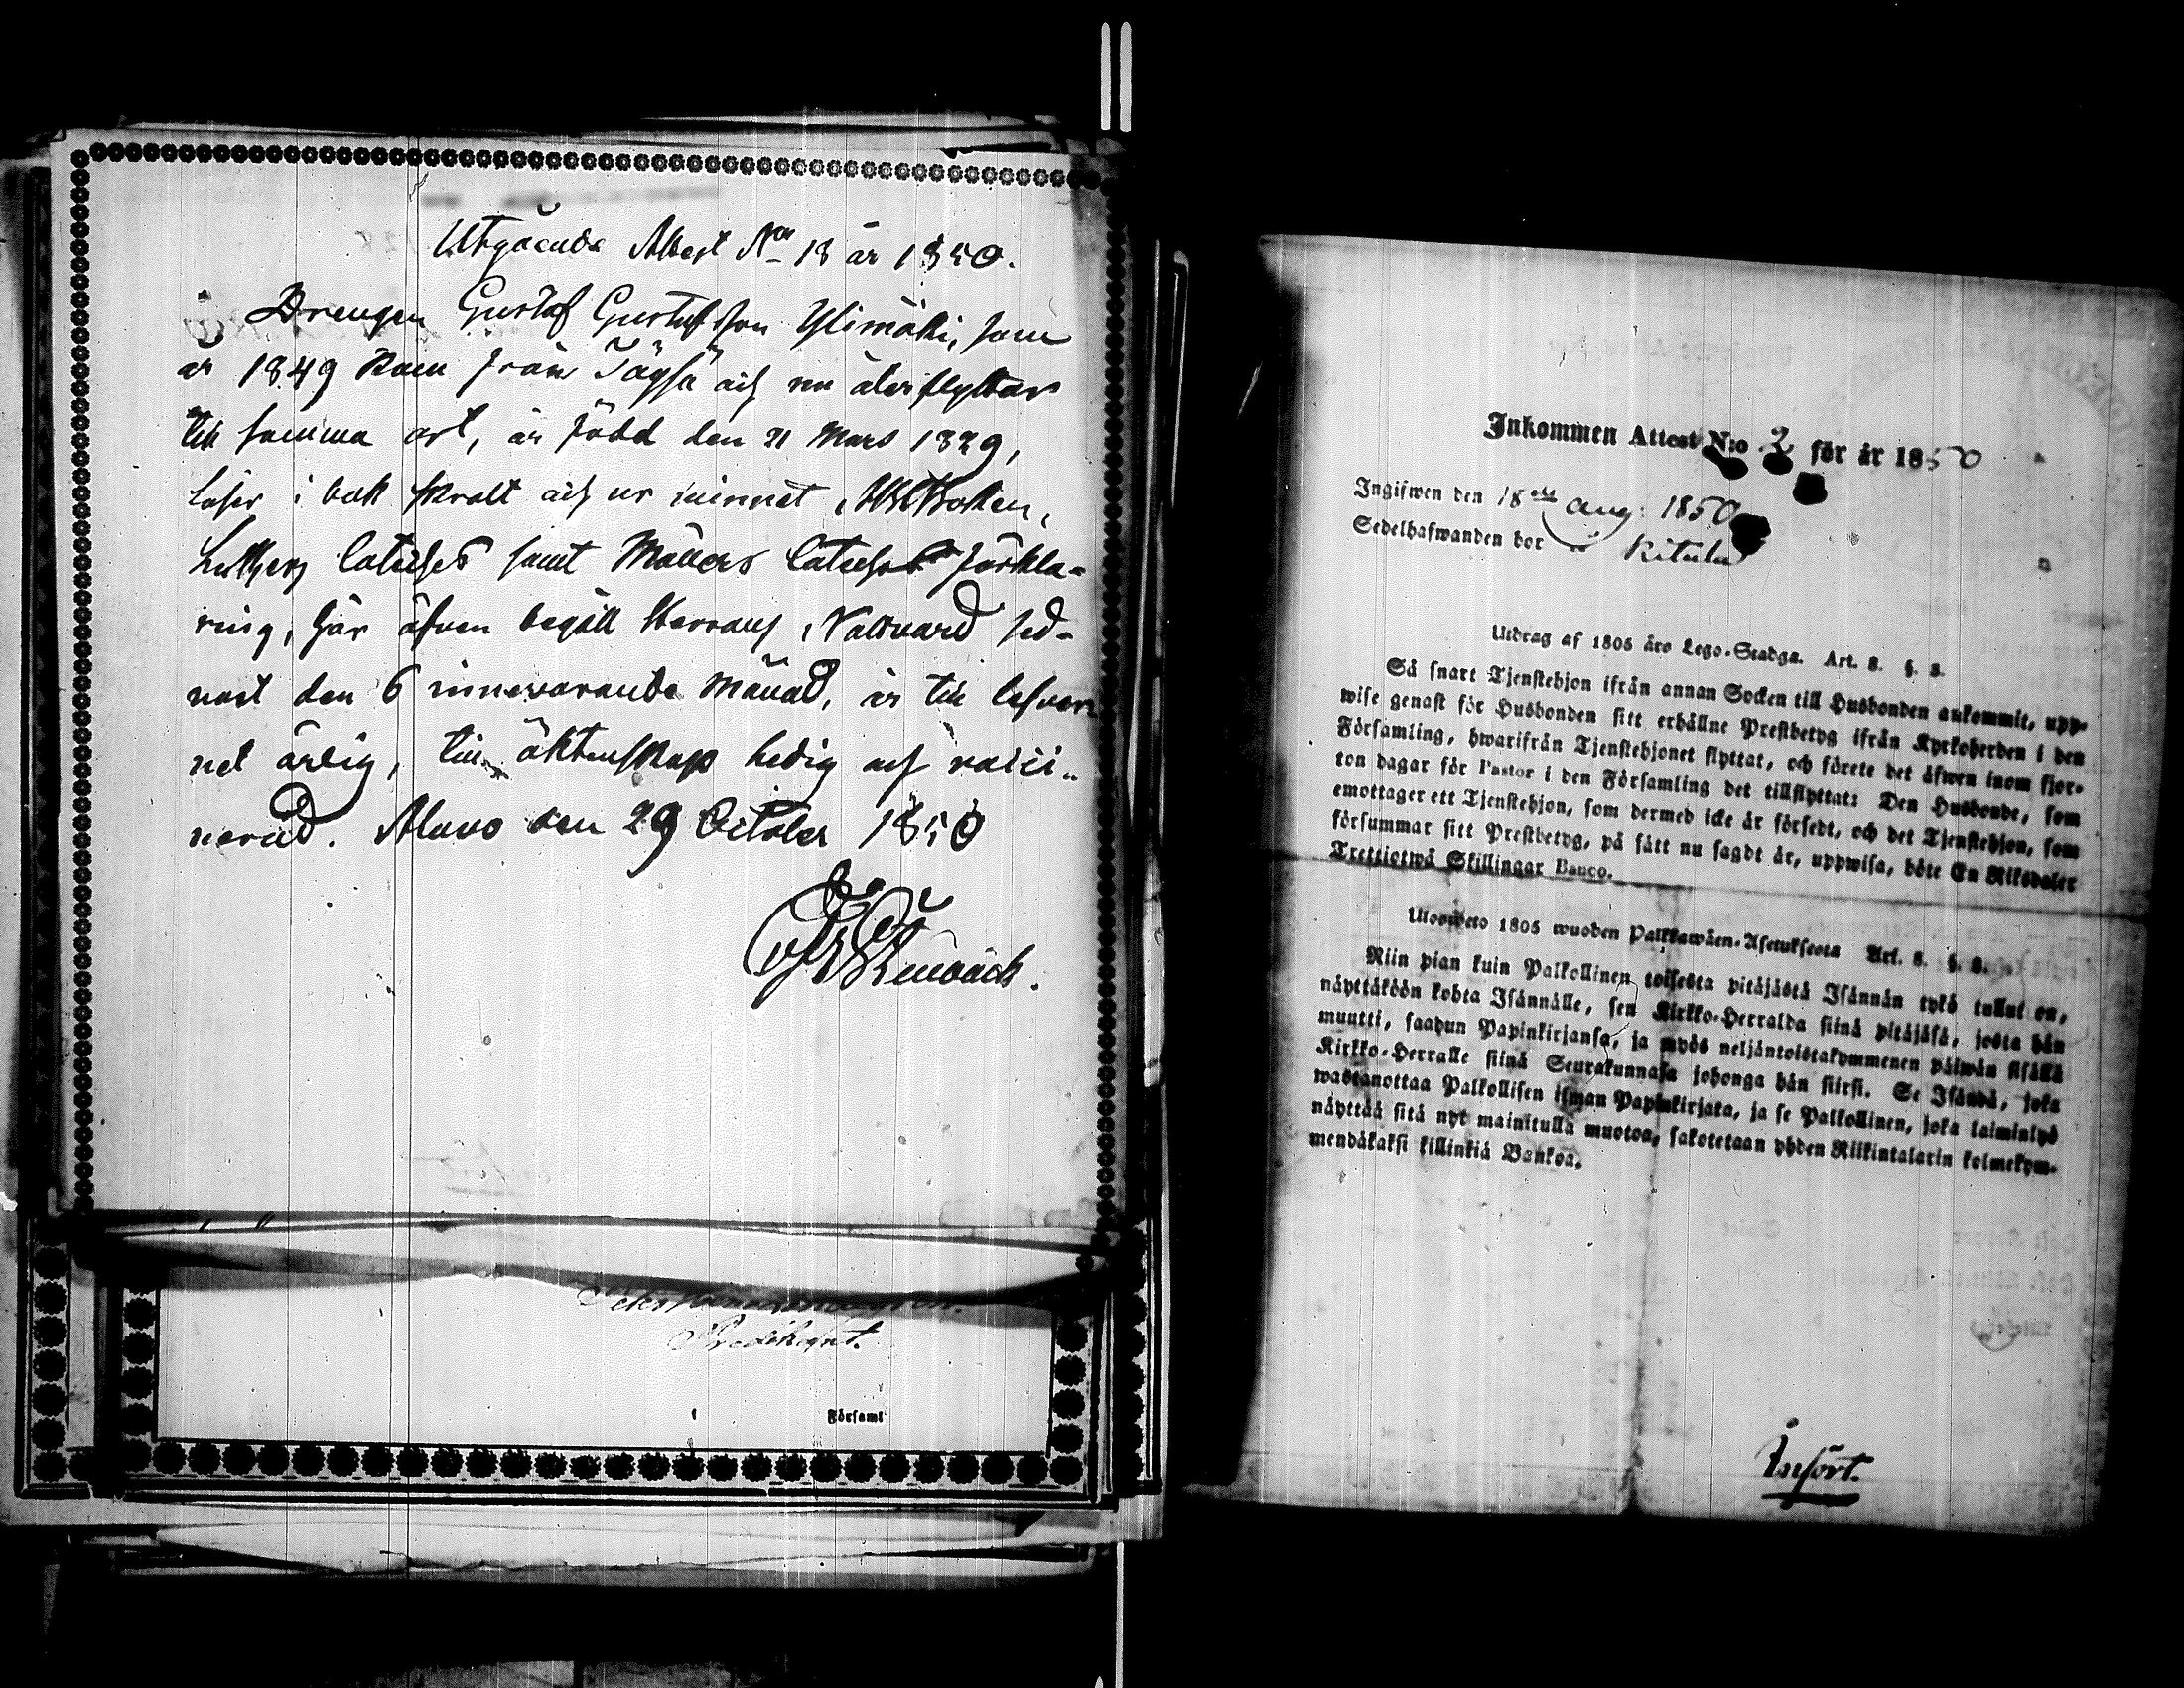 Utgående Attest No 18 år 1850.
Drengen Gustaf Gustafsson Ylimäki, som
år 1849 kom från Töysä och nu återflyttar
till samma ort, är född den 21 Mars 1829,
läser i bok svalt och ur minnet, ABCBoken,
Luthers Catches samt Möllers Catches förkla-
ring, har äfven begått Herrans Nattvard sed-
nast den 6 innevarande Månad, är till lefver-
net ärlig, till äktenskap ledig och vacci-
nerad. Alavo den 29 October 1850
Predikant.
Församl
Inkommen Attest N:o 2 för år 1850
Ingifwen den 18de Aug: 1850
Sedelhafwanden bor i Ritula
Utdrag af 1805 års Lego-Stadga. Art. 8. §. 8.
Så snart Tjenstehjon ifrån annan Socken till Husbonden ankommit, upp-
wise genast för Husbonden sitt erhållne Prestbetyg ifrån Kyrkoherden i den
Församling, hwarifrån Tjenstehjonet flyttat, och förete det äfwen inom fjor-
ton dagar för Pastor i den Församling det tillflyttat: Den Husbonde, som
emottager ett Tjenstehjon, som dermed icke är försedt, och det Tjenstehjon, som
försummar sitt Prestbetyg, på sätt nu sagdt är, uppwisa, böte En Riksdaler
Trettiotwå Skillingar Banco.
Ulosweto 1805 wuoden Palkkawäen-Asetuksesta Art. 8. §. 8.
Niin pian kuin Palkollinen toisesta pitäjästä Isännän tykö tullut on,
näyttäköön kohta Isännälle, sen Kirkko-Herralda siinä pitäjäsä, josta hän
muutti, saadun Papinkirjansa, ja myös neljäntoistakymmenen päiwän sisällä
Kirkko-Herralle siinä Seurakunnasa johonga hän siirsi. Se Isändä, joka
wastanottaa Palkollisen ilman Papinkirjata, ja se Palkollinen, joka laiminlyö
näyttää sitä nyt mainitulla muotoa, sakotetaan yhden Riikintalarin kolmekym-
mendäkaksi killinkiä Bankoa.
Infört.